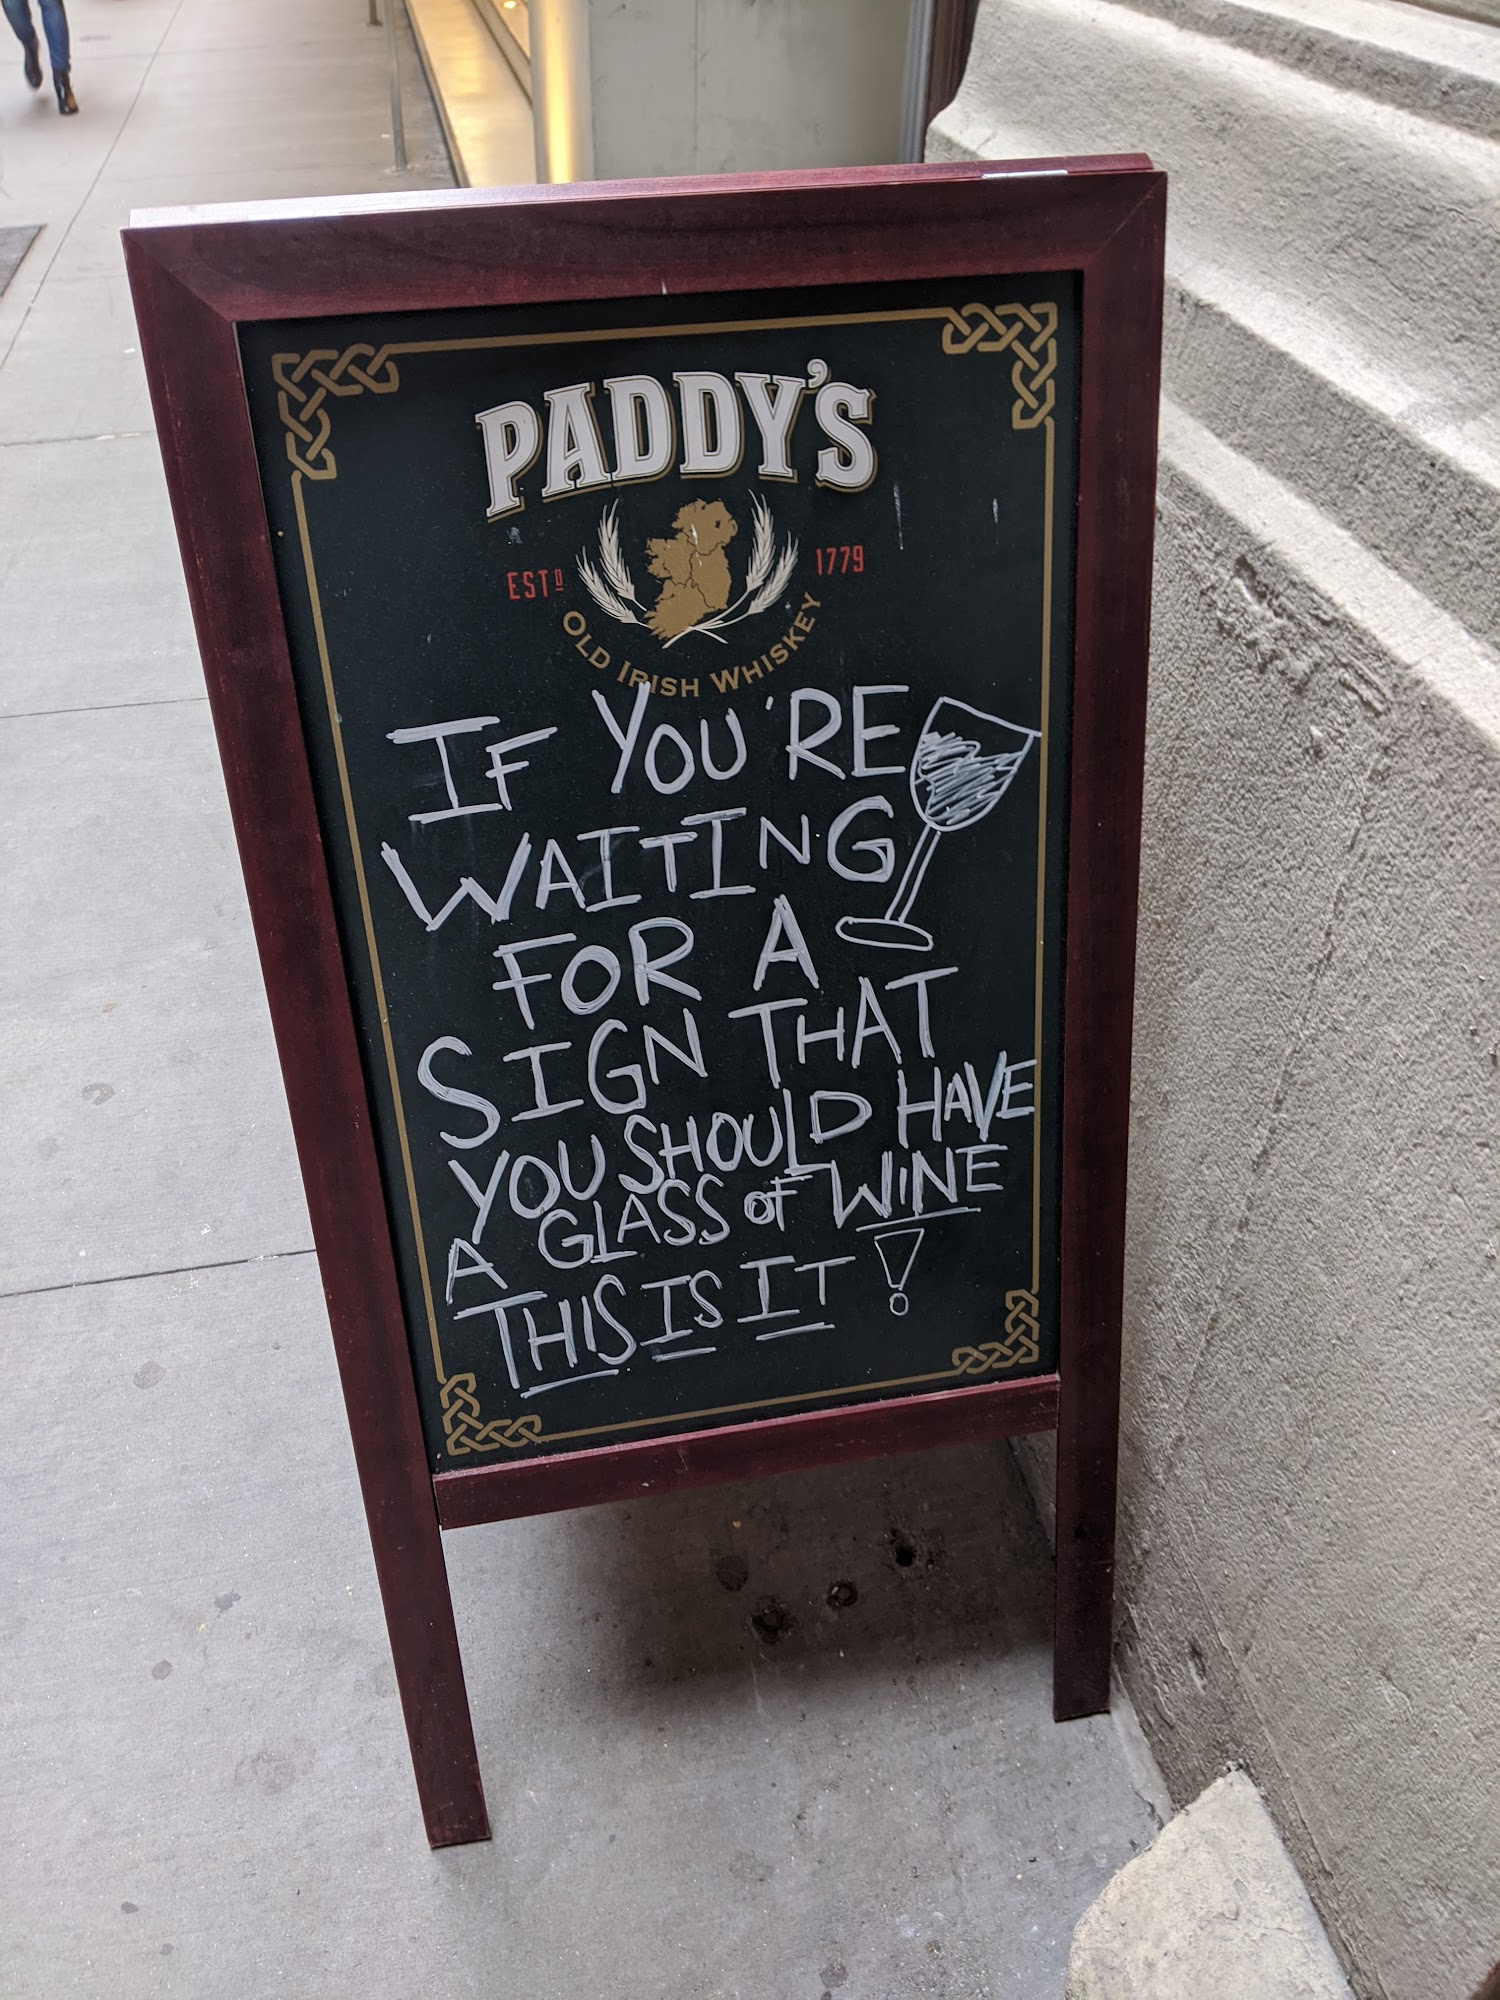 PADDY'S
ESTD 1779
OLD IRISH WHISKEY
IF YOU'RE
WAITING
FOR A
SIGN THAT
YOU SHOULD HAVE
A GLASS OF WINE
THIS IS IT!